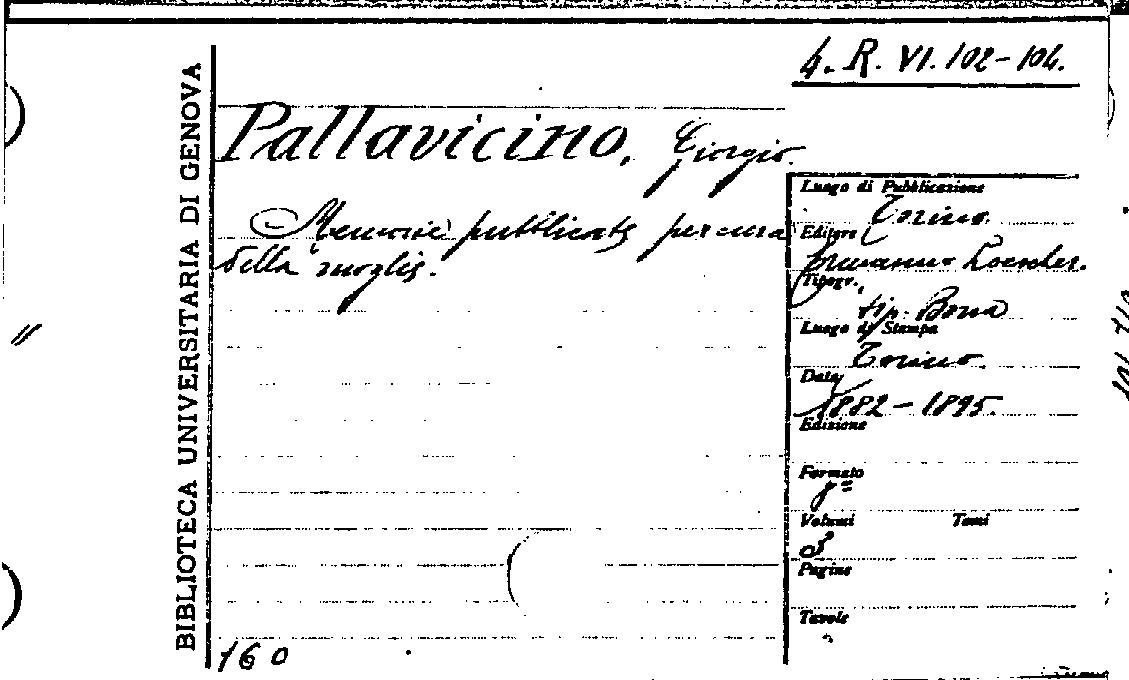 4. R. VI. 102-104.
BIBLIOTECA UNIVERSITARIA DI GENOVA
Pallavicino, Giorgio.
Memorie pubblicate per cura
della moglie.
Luogo di Pubblicazione
Torino.
Editore
Ermanno Loescher.
Tipogr.
tip. Bona
Luogo di Stampa
Torino.
Data
1882-1895.
Edizione
Formato
8º
Volumi Tomi
3
Pagine
Tavole
160